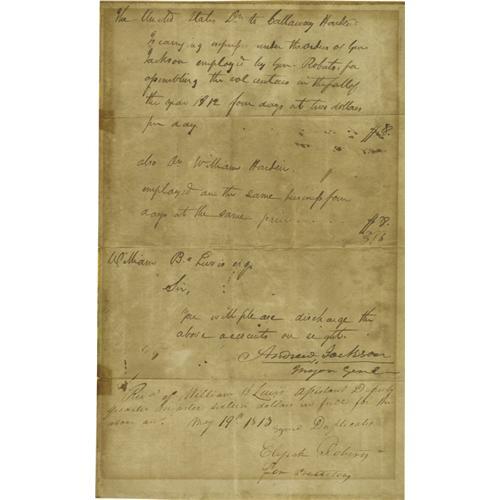 The United States Dr. to Callaway Harden
To carrying expresses under the orders of Genr
Jackson employed by Gen. Roberts for
assembling the volunteers in the fall of
the year 1812 four days at two dollars
per day
$8.
also Dr. William Harden
employed on the same business four
days at the same price
$8.
$16
William B. Lewis esq
Sir,
You will please discharge the
above accounts on sight.
Andrew Jackson
Major Genl
Rec'd of William B Lewis assistant Deputy
quarter master sixteen dollars in full for the
above acc. May 19th 1813
signed Duplicate
Elijah
for